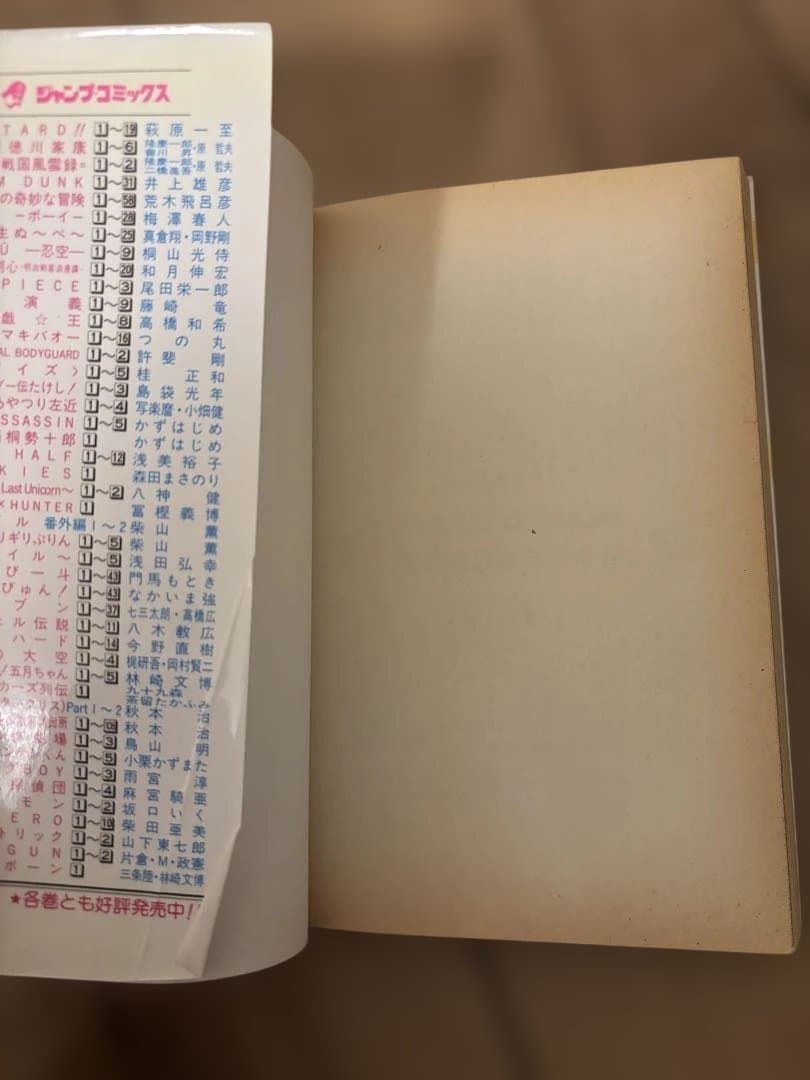 ジャンプ・コミックス
TARD!! 1〜19 萩原一至
徳川家康 1〜6 隆慶一郎・會川昇・原哲夫
戦国風雲録= 1〜2 隆慶一郎・二橋進吾・原哲夫
M DUNK 1〜31 井上雄彦
の奇妙な冒険 1〜58 荒木飛呂彦
―ボーイ― 1〜28 梅澤春人
生ぬ〜べ〜 1〜25 真倉翔・岡野剛
Ū ―忍空― 1〜9 桐山光侍
剣心-明治剣客浪漫譚- 1〜20 和月伸宏
PIECE 1〜3 尾田栄一郎
演義 1〜9 藤崎竜
戯☆王 1〜8 高橋和希
マキバオー 1〜16 つの丸
AL BODYGUARD 1〜2 許斐剛
イズ〉 1〜5 桂正和
ダー伝たけし! 1〜3 島袋光年
あやつり左近 1〜4 写楽麿・小畑健
SSASSIN 1〜5 かずはじめ
桐勢十郎 1 かずはじめ
HALF 1〜12 浅美裕子
KIES 1 森田まさのり
Last Unicorn〜 1〜2 八神健
×HUNTER 1 冨樫義博
ル 番外編1〜2 柴山薫
リギリぷりん 1〜5 柴山薫
イル〜 1〜5 浅田弘幸
び一斗 1〜43 門馬もとき
びゅん! 1〜43 なかいま強
ブン 1〜37 七三太朗・高橋広
ェル伝説 1〜11 八木教広
ハード 1〜14 今野直樹
の大空 1〜4 梶研吾・岡村賢二
!五月ちゃん 1〜5 林崎文博
カーズ列伝 1 九十九森 茶留たかふみ
クリス)Part1〜2 秋本治
出所 秋本治
場 1〜3 鳥山明
くん 1〜5 小栗かずまた
BOY 1〜3 雨宮淳
探偵団 1〜4 麻宮騎亜
モン 1〜2 坂口いく
ERO 1〜10 柴田亜美
トリック 1〜2 山下東七郎
GUN 1〜2 片倉・M・政憲
ボーン 1 三条陸・林崎文博
★各巻とも好評発売中!